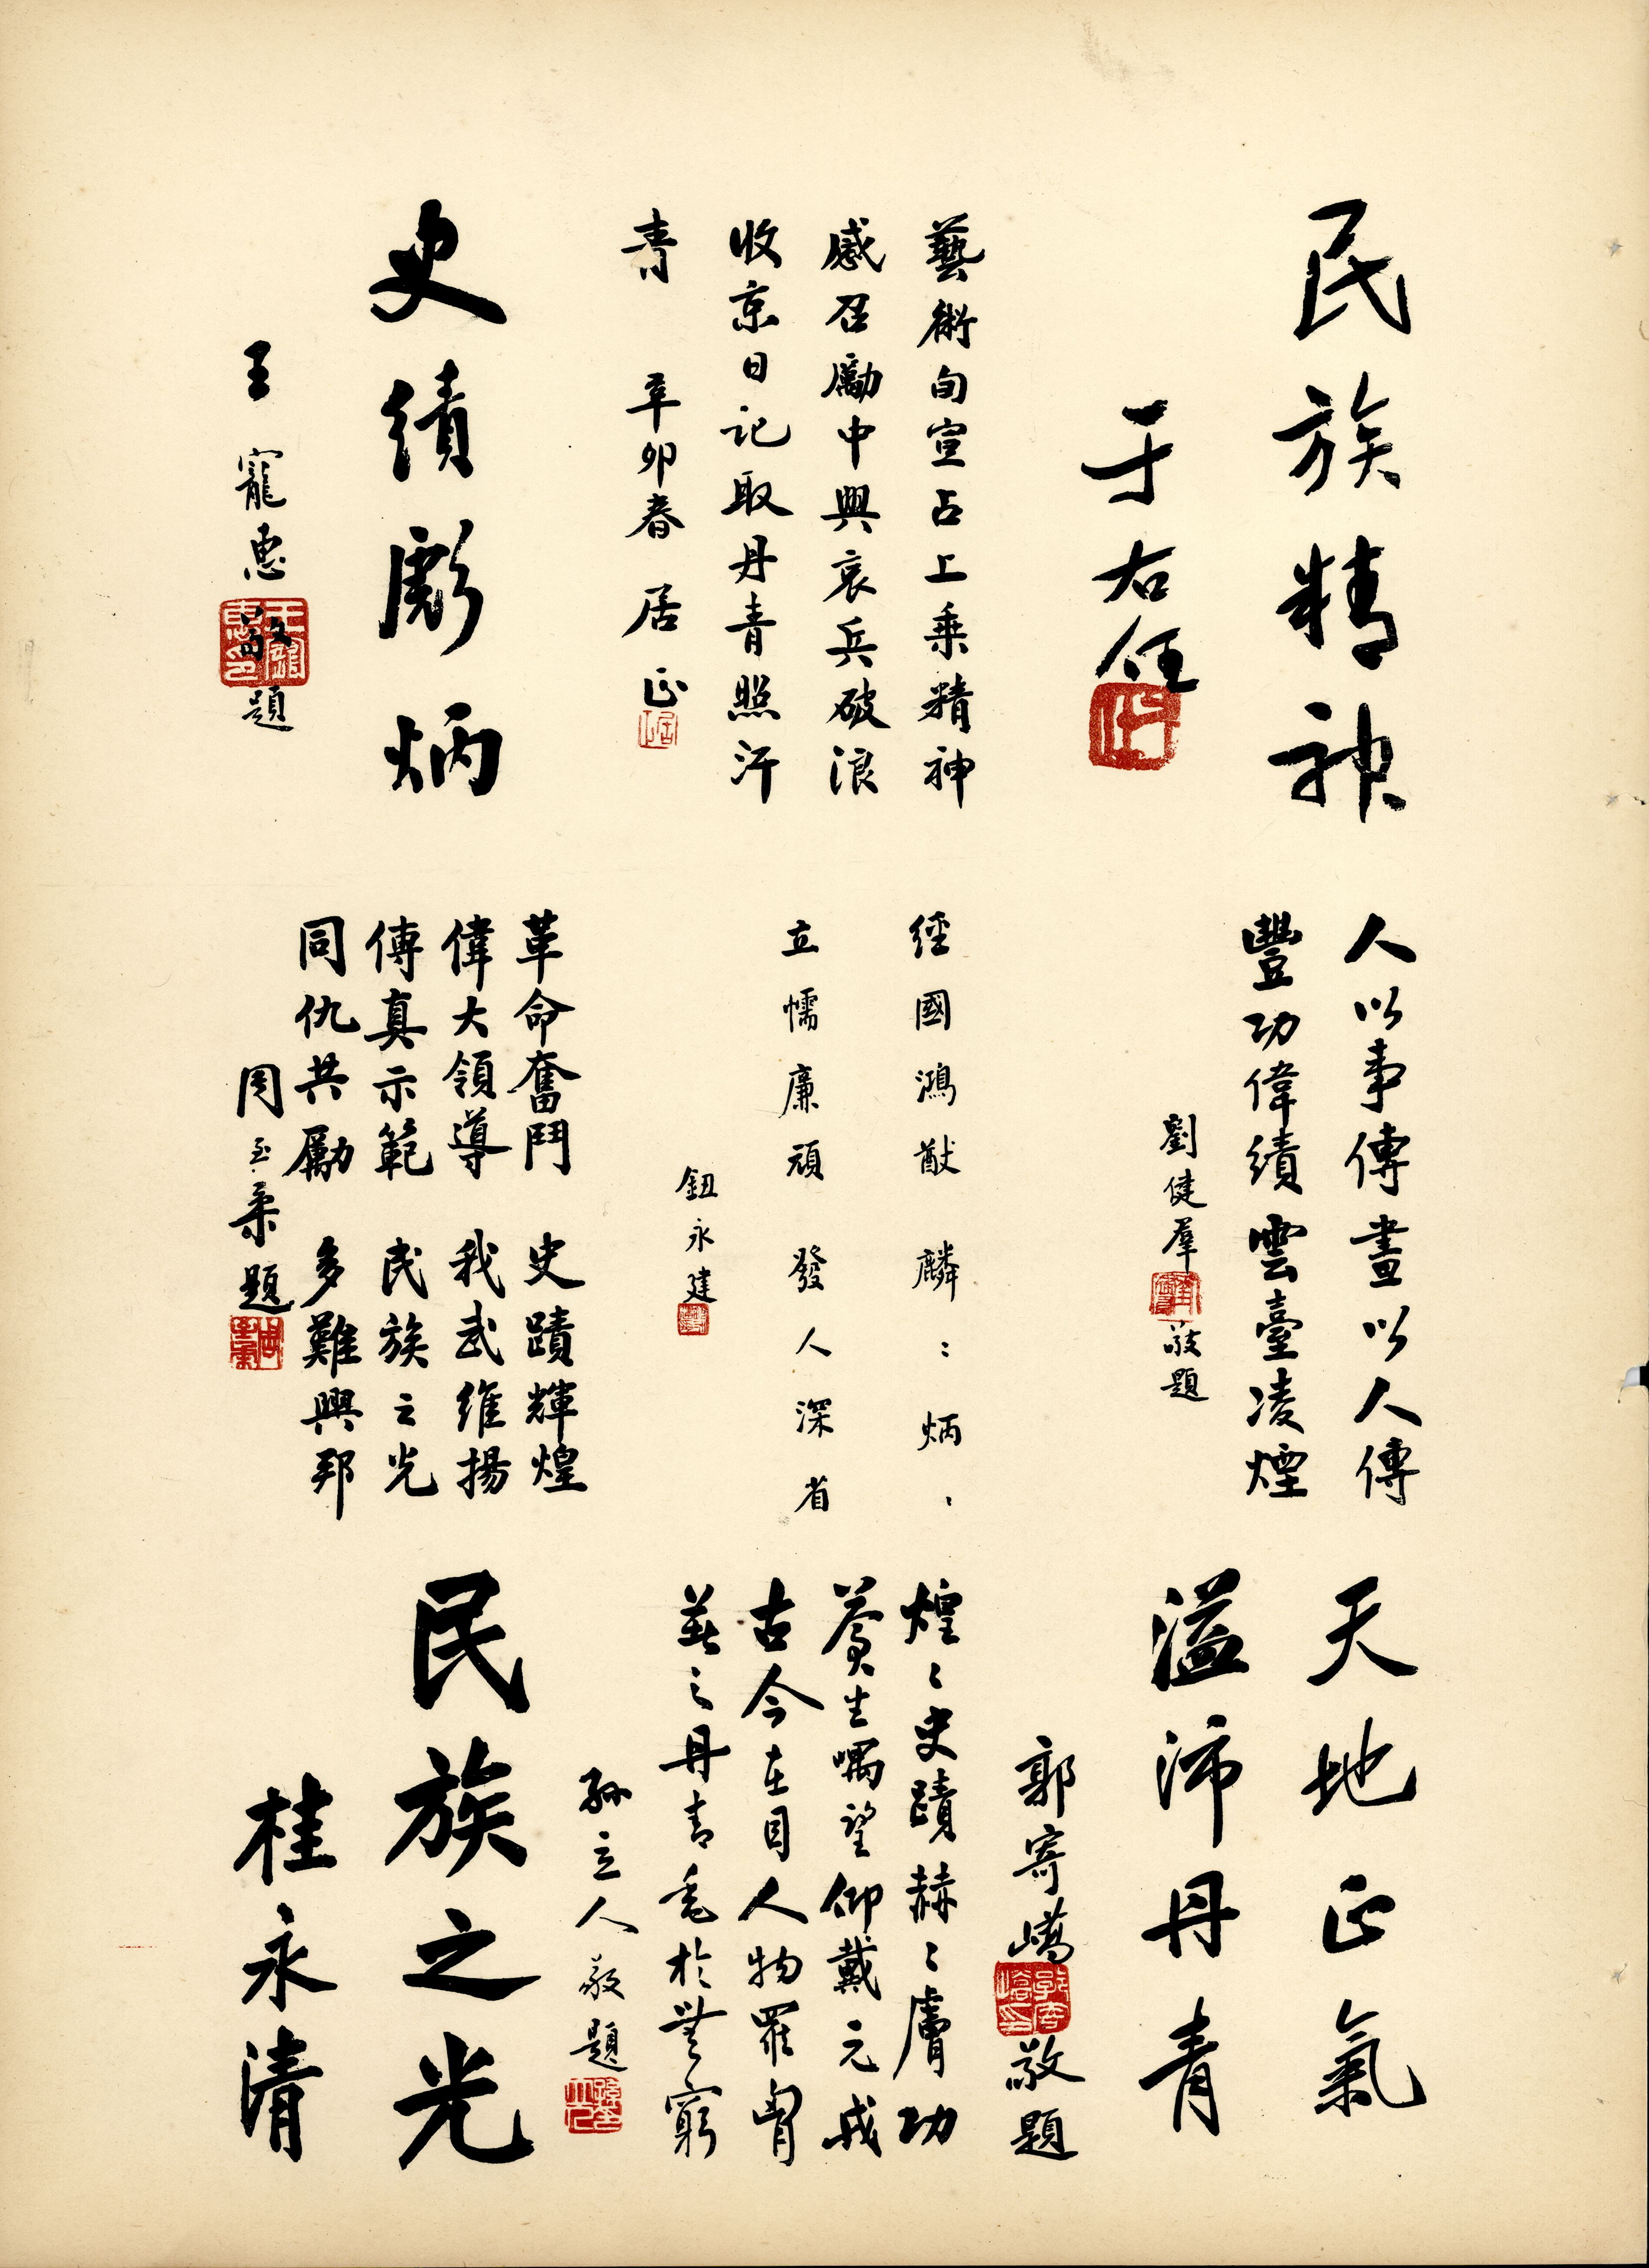 民族精神
于右任
藝術旬宣占上乘精神
感召勵中興哀兵破浪
收京日記取丹青照汗
青 辛卯春 居正
史績彪炳
王寵惠敬題
人以事傳畫以人傳
豐功偉績雲臺凌煙
劉健羣敬題
經國鴻猷麟:炳、
立懦廉頑發人深省
鈕永建
革命奮鬥 史蹟輝煌
偉大領導 我武維揚
傳真示範 民族之光
同仇共勵 多難興邦
周至柔題
天地正氣
溢沛丹青
郭寄嶠敬題
煌々史蹟赫々膚功
蒼生喁望仰戴元戎
古今在目人物羅胷
著之丹青垂於無窮
孫立人敬題
民族之光
桂永清